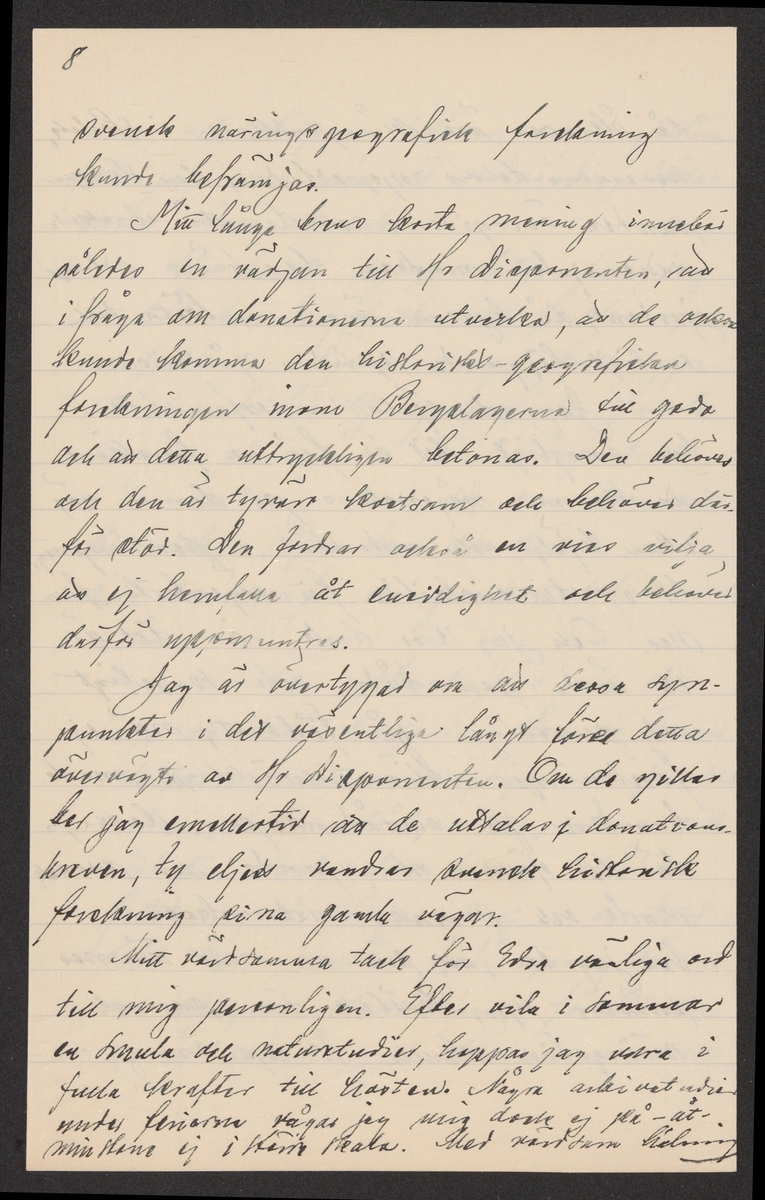 8
svensk näringsgeografisk forskning
kunde befrämjas.
Mitt långa brevs korta mening innebär
således en vädjan till Hr Disponenten, att
i fråga om donationerna utverka, att de också
kunde komma den historisk-geografiska
forskningen inom Bergslagerna till godo
och att detta uttryckligen betonas. Den behöves
och den är tyvärr kostsam och behöver där-
för stöd. Den fordrar också en viss vilja,
att ej hemfalla åt ensidighet och behöver
därför uppmuntras.
Jag är övertygad om att dessa syn-
punkter i det väsentliga långt före detta
övervägts av Hr Disponenten. Om de gillas
ber jag emellertid att de uttalas i donations-
breven, ty eljes vandrar svensk historisk
forskning sina gamla vägar.
Mitt vördsamma tack för Edra vänliga ord
till mig personligen. Efter vila i sommar
en smula och naturstudier, hoppas jag vara i
fulla krafter till hösten. Några arkivstudier
under ferierna vågar jag mig dock ej på - åt-
minstone ej i större skala. Med vördsam hälsning